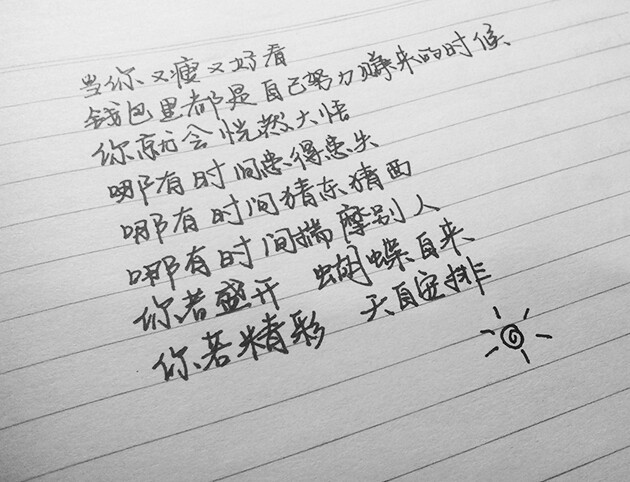 当你又瘦又好看
钱包里都是自己努力赚来的时候
你就会恍然大悟
哪有时间患得患失
哪有时间猜东猜西
哪有时间揣摩别人
你若盛开 蝴蝶自来
你若精彩 天自安排